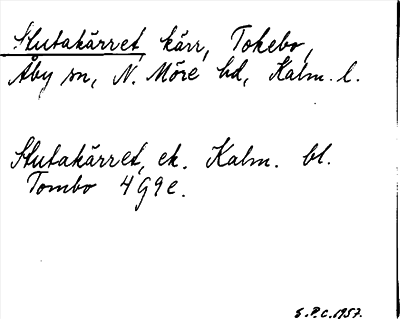 Stutakärret, kärr, Tokebo,
Åby sn, N. Möre hd, Kalm. l.
Stutakärret, ek. Kalm. bl.
Tombo 4 G 9 e.
S.P.C. 1957.